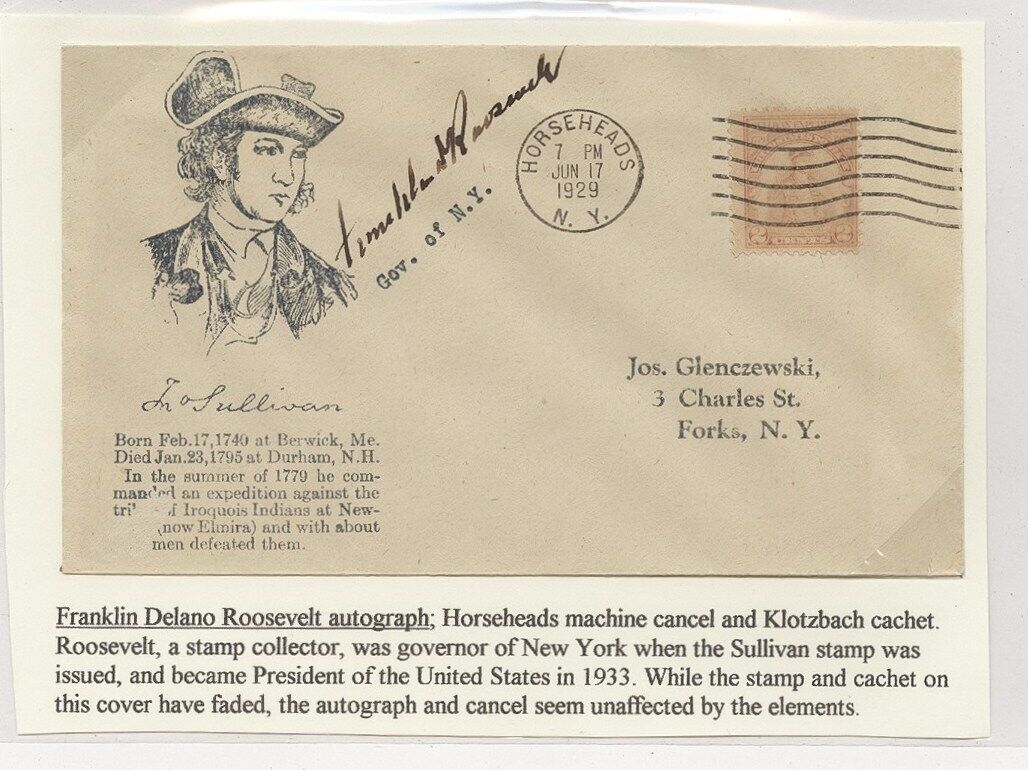 Franklin D Roosevelt
Gov. of N.Y.
HORSEHEADS
7 PM
JUN 17
1929
N. Y.
2 CENTS 2
Jos. Glenczewski,
3 Charles St.
Forks, N. Y.
Jno Sullivan
Born Feb.17,1740 at Berwick, Me.
Died Jan.23,1795 at Durham, N.H.
In the summer of 1779 he com-
manded an expedition against the
tri of Iroquois Indians at New-
now Elmira) and with about
men defeated them.
Franklin Delano Roosevelt autograph; Horseheads machine cancel and Klotzbach cachet.
Roosevelt, a stamp collector, was governor of New York when the Sullivan stamp was
issued, and became President of the United States in 1933. While the stamp and cachet on
this cover have faded, the autograph and cancel seem unaffected by the elements.